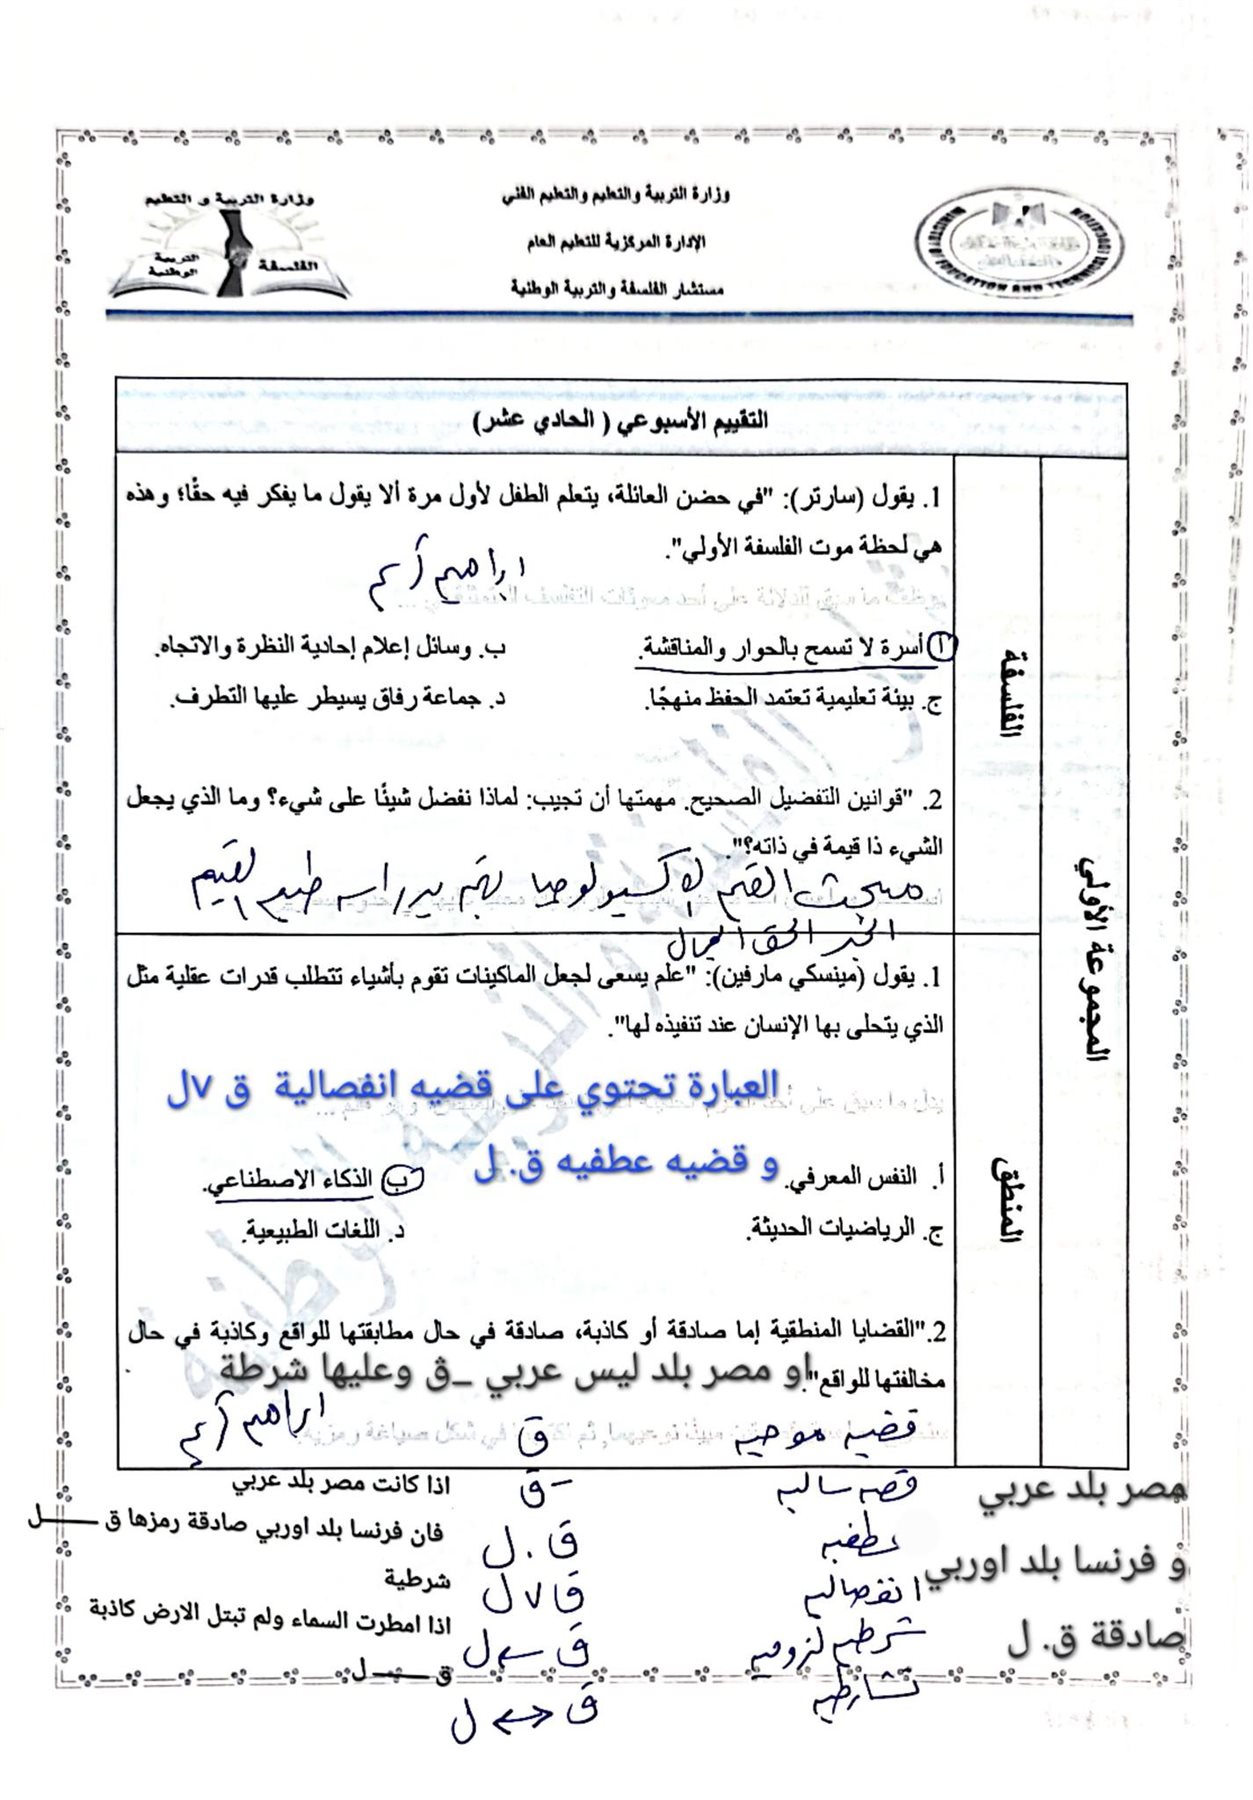 وزارة التربية والتعليم والتعليم الفني
الإدارة المركزية للتعليم العام
مستشار الفلسفة والتربية الوطنية
وزارة التربية و التعليم
الفلسفة
التربية الوطنية
التقييم الأسبوعي ( الحادي عشر)
المجموعة الأولي
الفلسفة
1. يقول (سارتر): "في حضن العائلة، يتعلم الطفل لأول مرة ألا يقول ما يفكر فيه حقًا؛ وهذه
هي لحظة موت الفلسفة الأولي".
أ. أسرة لا تسمح بالحوار والمناقشة.
ب. وسائل إعلام إحادية النظرة والاتجاه.
ج. بيئة تعليمية تعتمد الحفظ منهجًا.
د. جماعة رفاق يسيطر عليها التطرف.
2. "قوانين التفضيل الصحيح. مهمتها أن تجيب: لماذا نفضل شيئًا على شيء؟ وما الذي يجعل
الشيء ذا قيمة في ذاته؟".
مبحث القيم الاكسيولوجيا يهتم بدراسه طبيعه القيم
الخير الحق الجمال
المنطق
1. يقول (مينسكي مارفين): "علم يسعى لجعل الماكينات تقوم بأشياء تتطلب قدرات عقلية مثل
الذي يتحلى بها الإنسان عند تنفيذه لها".
العبارة تحتوي على قضيه انفصالية ق ٧ل
و قضيه عطفيه ق. ل
أ. النفس المعرفي.
ب. الذكاء الاصطناعي.
ج. الرياضيات الحديثة.
د. اللغات الطبيعية.
2."القضايا المنطقية إما صادقة أو كاذبة، صادقة في حال مطابقتها للواقع وكاذبة في حال
مخالفتها للواقع".
او مصر بلد ليس عربي _ق وعليها شرطة
قضيه موجبه ق
قضيه سالبه -ق
عطفيه ق . ل
انفصاليه ق ٧ ل
شرطيه لزوميه ق ← ل
تشارطيه ق ↔ ل
مصر بلد عربي
و فرنسا بلد اوربي
صادقة ق. ل
اذا كانت مصر بلد عربي
فان فرنسا بلد اوربي صادقة رمزها ق ـــــ ل
شرطية
اذا امطرت السماء ولم تبتل الارض كاذبة
ق ـــــ ل